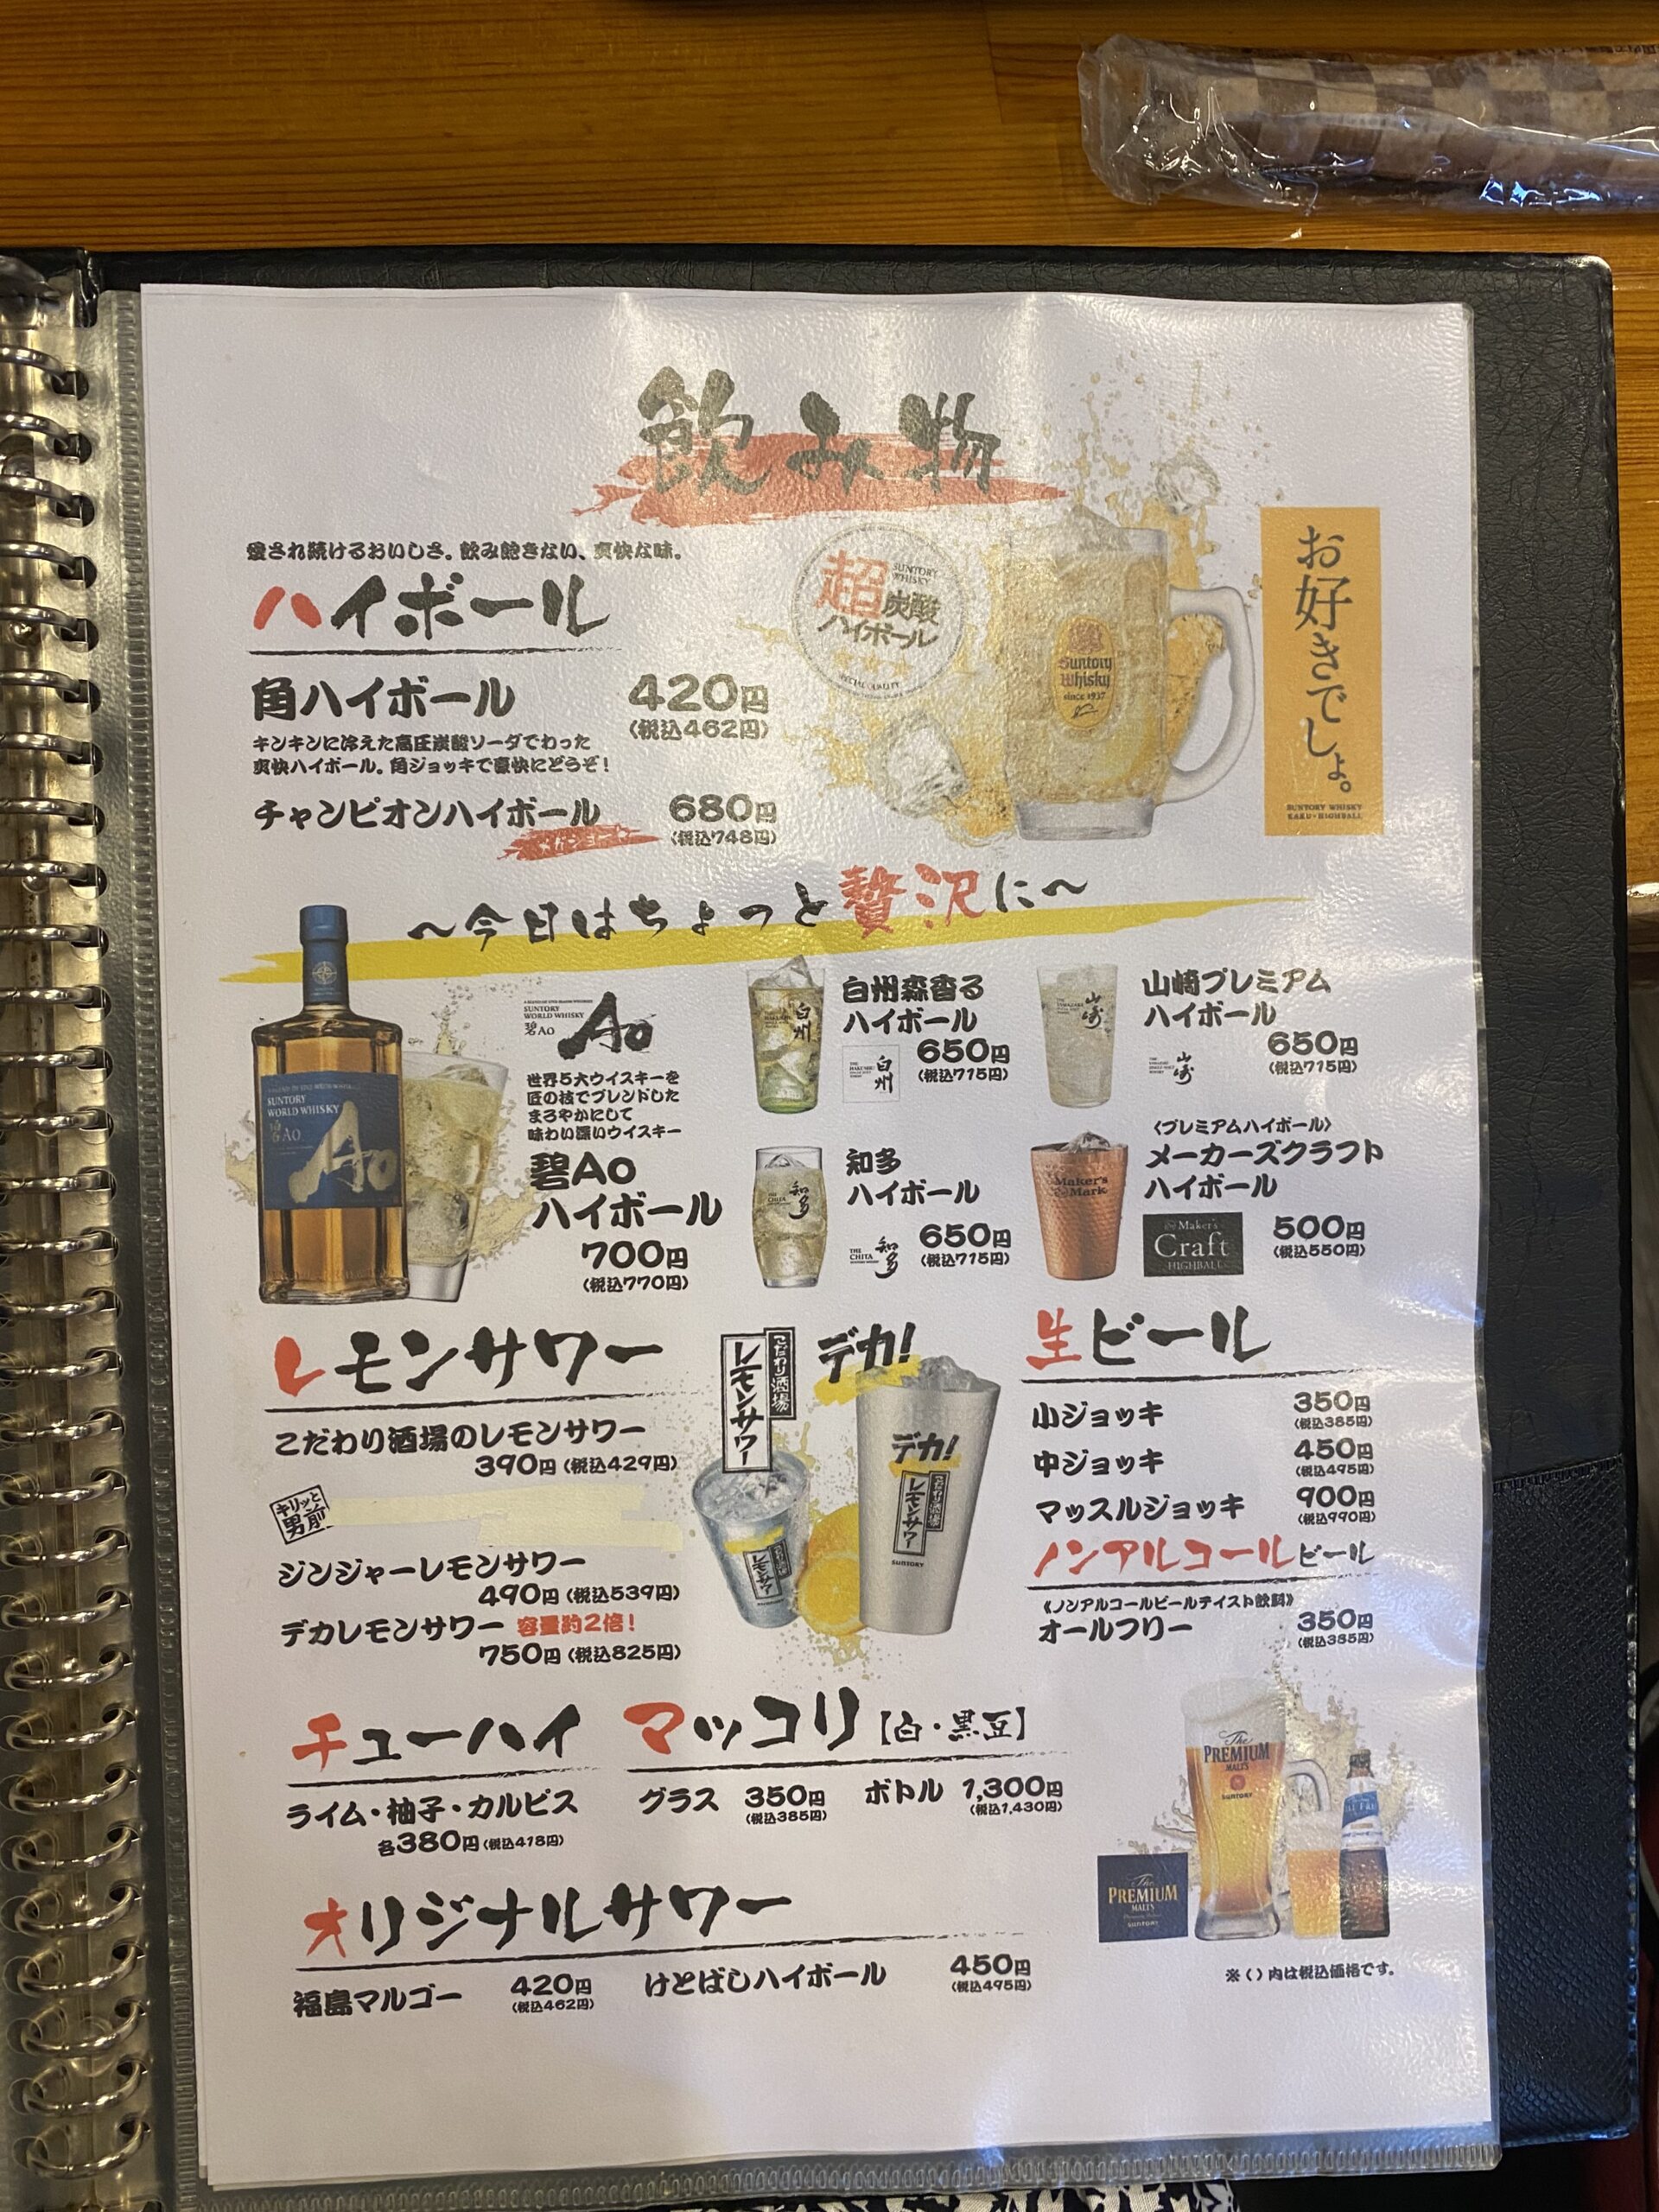 飲み物
愛され続けるおいしさ。飲み飽きない、爽快な味。
ハイボール
角ハイボール 420円
(税込462円)
キンキンに冷えた高圧炭酸ソーダでわった
爽快ハイボール。角ジョッキで豪快にどうぞ！
チャンピオンハイボール 680円
(税込748円)
超
SUNTORY
WHISKY
炭酸
ハイボール
Suntory
Whisky
since 1937
お好きでしょ。
SUNTORY WHISKY
KAKU-HIGHBALL
〜今日はちょっと贅沢に〜
SUNTORY
WORLD WHISKY
碧AO
Ao
SUNTORY
WORLD WHISKY
碧AO
Ao
世界5大ウイスキーを
匠の技でブレンドした
まろやかにして
味わい深いウイスキー
碧Ao
ハイボール
700円
(税込770円)
白州
白州森香る
ハイボール
白州
650円
(税込715円)
山崎
山崎プレミアム
ハイボール
山崎
650円
(税込715円)
知多
知多
ハイボール
THE
CHITA
知多
650円
(税込715円)
Maker's
Mark
〈プレミアムハイボール〉
メーカーズクラフト
ハイボール
Maker's
Craft
HIGHBALL
500円
(税込550円)
レモンサワー
こだわり酒場のレモンサワー
390円(税込429円)
キリッと
男前
ジンジャーレモンサワー
490円(税込539円)
デカレモンサワー 容量約2倍！
750円(税込825円)
こだわり酒場
レモンサワー
こだわり酒場
レモンサワー
デカ！
デカ！
こだわり酒場
レモンサワー
SUNTORY
生ビール
小ジョッキ 350円
(税込385円)
中ジョッキ 450円
(税込495円)
マッスルジョッキ 900円
(税込990円)
ノンアルコールビール
《ノンアルコールビールテイスト飲料》
オールフリー 350円
(税込385円)
チューハイ
ライム・柚子・カルピス
各380円(税込418円)
マッコリ【白・黒豆】
グラス 350円
(税込385円)
ボトル 1,300円
(税込1,430円)
The
PREMIUM
MALT'S
SUNTORY
The
PREMIUM
MALT'S
SUNTORY
オリジナルサワー
福島マルゴー 420円
(税込462円)
けとばしハイボール 450円
(税込495円)
※()内は税込価格です。